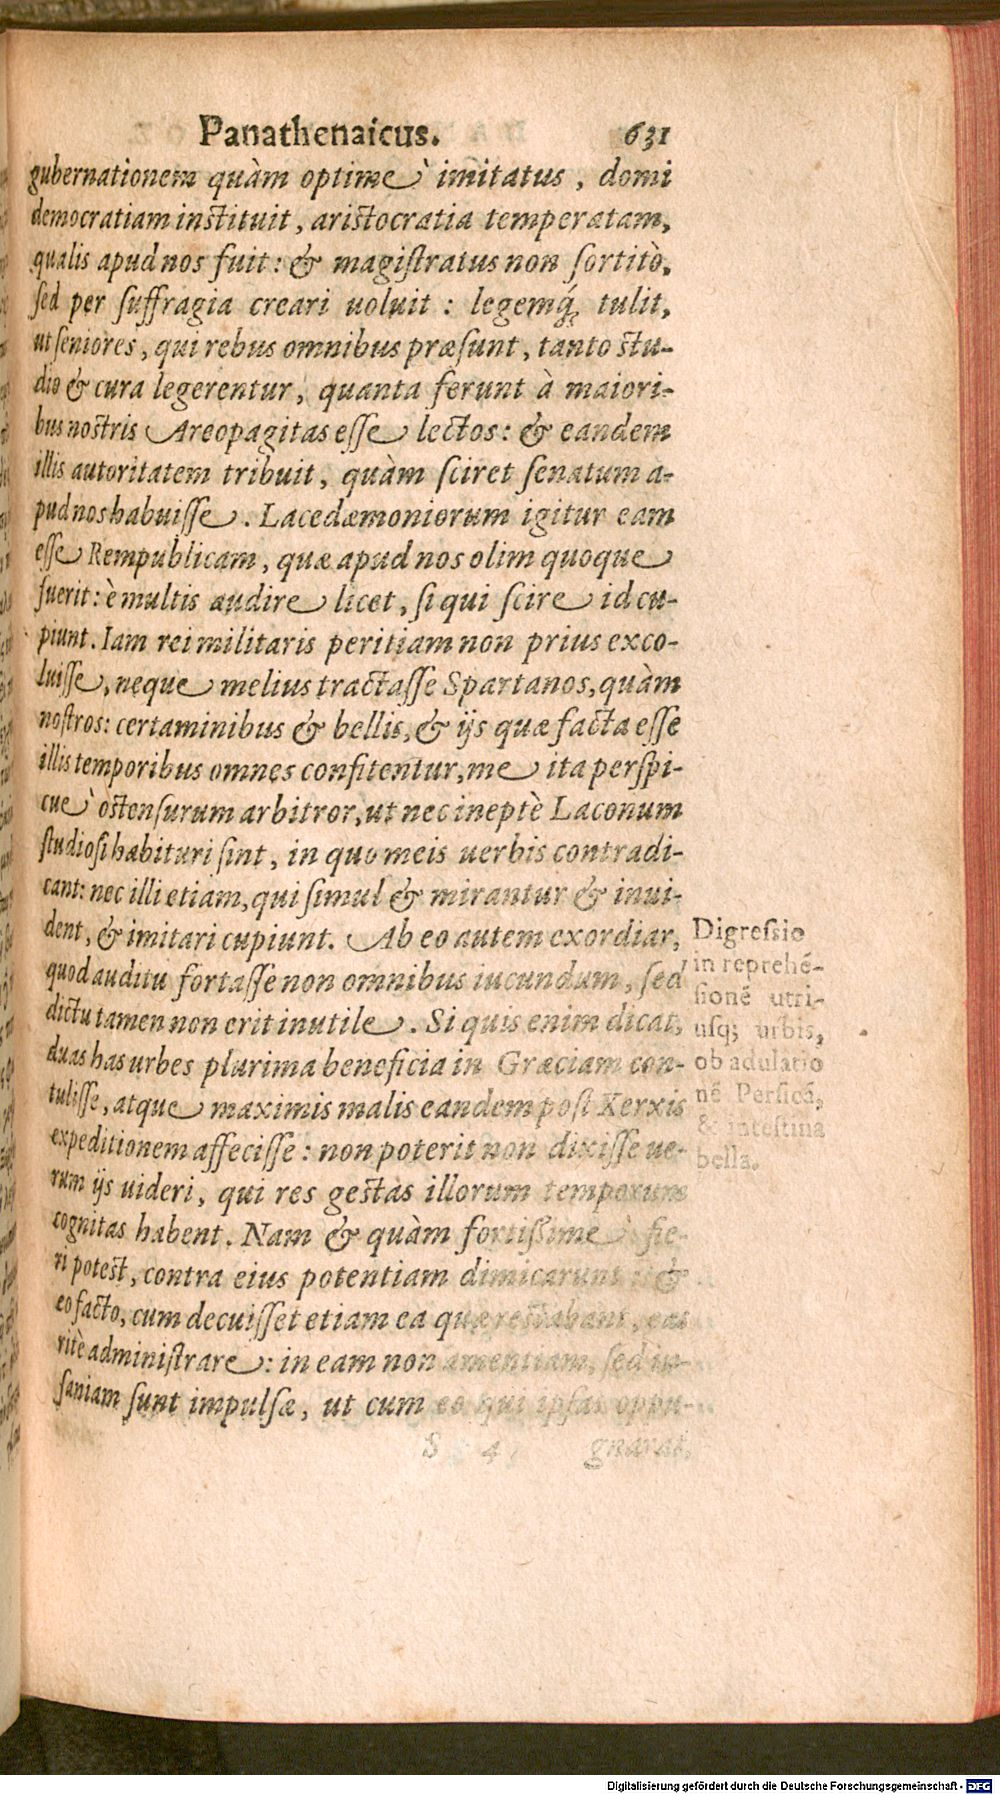 Panathenaicus. 631
gubernationem quàm optimè imitatus, domi
democratiam instituit, aristocratia temperatam,
qualis apud nos fuit: & magistratus non sortitò,
sed per suffragia creari uoluit: legemq́; tulit,
ut seniores, qui rebus omnibus præsunt, tanto stu-
dio & cura legerentur, quanta ferunt à maiori-
bus nostris Areopagitas esse lectos: & eandem
illis autoritatem tribuit, quàm sciret senatum a-
pud nos habuisse. Lacedæmoniorum igitur eam
esse Rempublicam, quæ apud nos olim quoque
fuerit: è multis audire licet, si qui scire id cu-
piunt. Iam rei militaris peritiam non prius exco-
luisse, neque melius tractasse Spartanos, quàm
nostros: certaminibus & bellis, & ijs quæ facta esse
illis temporibus omnes confitentur, me ita perspi-
cuè ostensurum arbitror, ut nec ineptè Laconum
studiosi habituri sint, in quo meis uerbis contradi-
cant: nec illi etiam, qui simul & mirantur & inui-
dent, & imitari cupiunt. Ab eo autem exordiar,
quod auditu fortasse non omnibus iucundum, sed
dictu tamen non erit inutile. Si quis enim dicat,
duas has urbes plurima beneficia in Græciam con-
tulisse, atque maximis malis eandem post Xerxis
expeditionem affecisse: non poterit non dixisse ue-
rum ijs uideri, qui res gestas illorum temporum
cognitas habent. Nam & quàm fortissimè fie-
ri potest, contra eius potentiam dimicarunt: &
eo facto, cum decuisset etiam ea quæ restabant,
ritè administrare: in eam non amentiam, sed in-
saniam sunt impulsæ, ut cum eo qui ipsas oppu-
S 4 gnarat,
Digressio
in reprehē-
sionē utri-
usq; urbis,
ob adulatio
nē Persicā,
& intestina
bella.
Digitalisierung gefördert durch die Deutsche Forschungsgemeinschaft - DFG